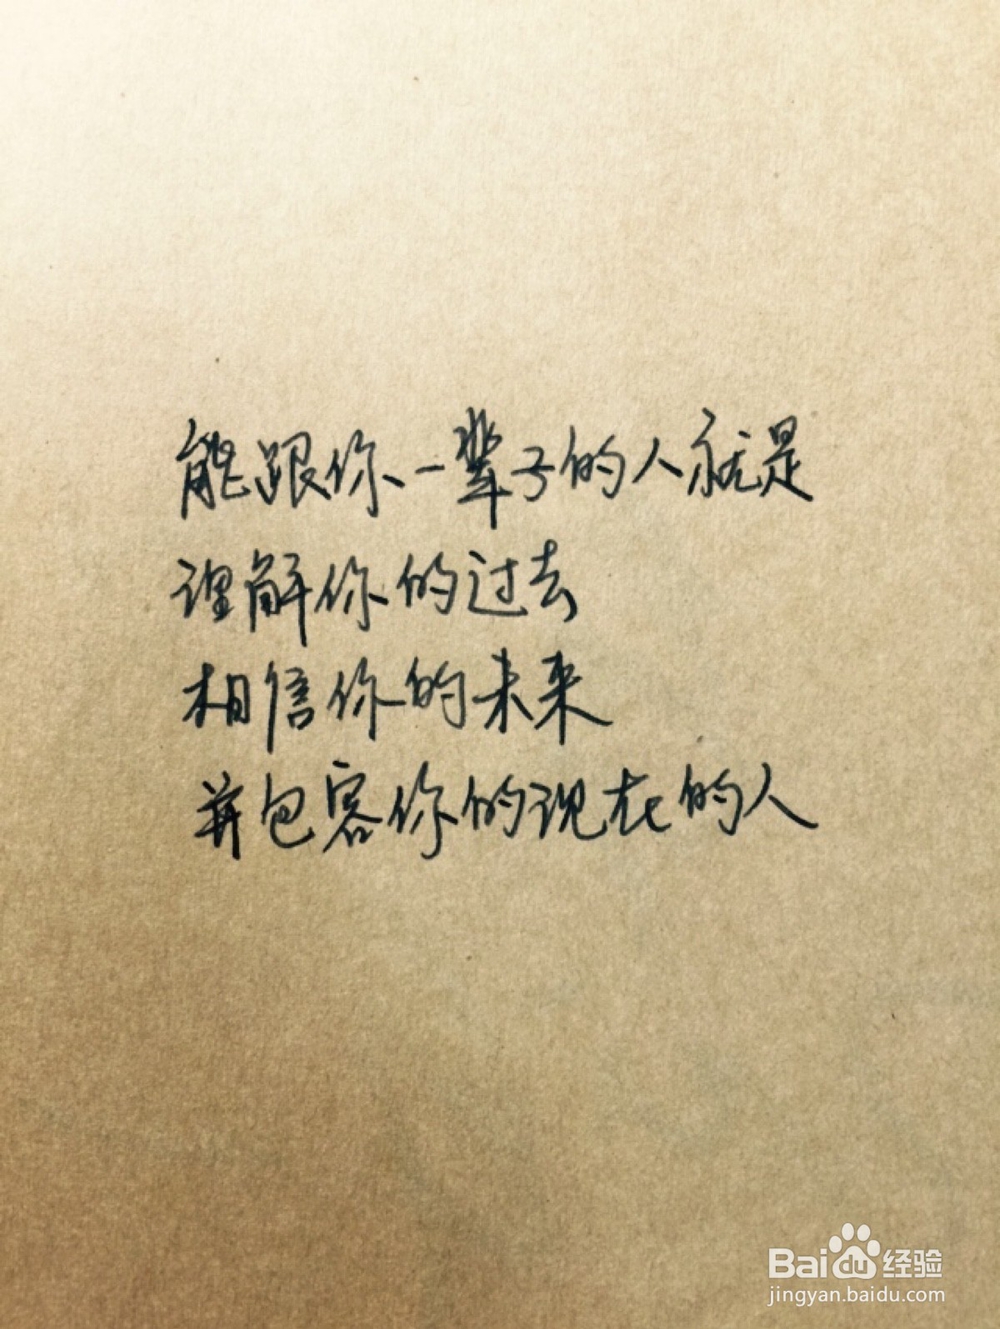 能跟你一辈子的人就是
理解你的过去
相信你的未来
并包容你的现在的人
Baidu 经验
jingyan.baidu.com